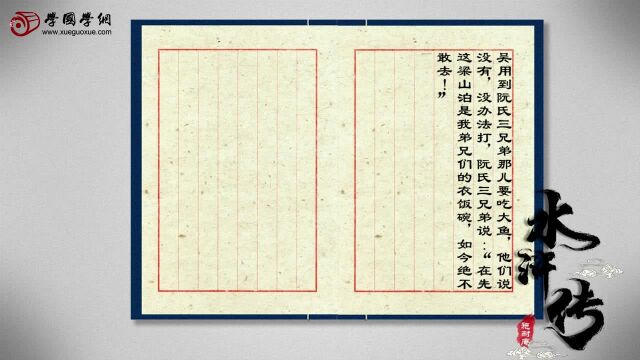 學國學網
www.xueguoxue.com
吴用到阮氏三兄弟那儿要吃大鱼，他们说
没有，没办法打，阮氏三兄弟说：“在先
这梁山泊是我弟兄们的衣饭碗，如今绝不
敢去！”
水浒传
施耐庵